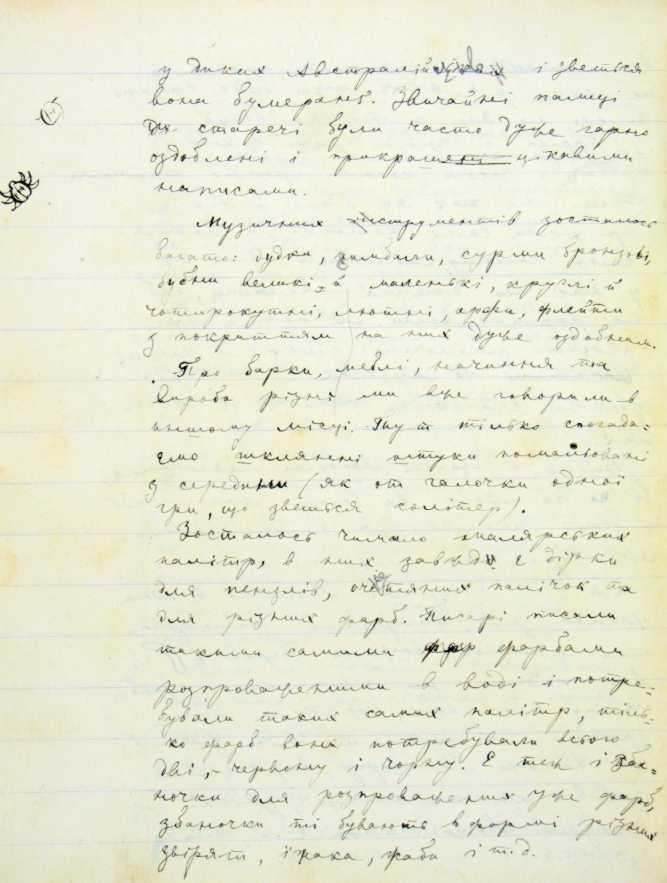 у диких Австралійців і зветься
вона бумеранґ. Звичайні палиці
старечі були часте дуже гарно
оздоблені і прикрашені цікавими
написами.
Музичних інструментів зосталось
багато: дудки, цимбали, сурми бронзові,
бубни великі й маленькі, круглі й
чотирокутні, лютні, арфи, флейти
з покриттям на них дуже оздобним.
Про барки, меблі, начиння та
вироби різні ми вже говорили в
иншому місці. Тут тілько спогада-
ємо шклянні штуки помальовані
з середини (як от галочки одної
гри, що зветься солітер).
Зосталось чимало малярських
палітр, в них завжди є дірки
для пензлів, очеретяних палічок та
для різних фарб. Писарі писали
такими самими фарбами
розпроваженими в воді і потре-
бували таких самих палітр, тіль-
ко фарб вони потребували всього
дві, - червону і чорну. Є теж і зба-
ночки для розпроваження уже фарб,
збаночки ті бувають в формі різних
звірят, їжака, жаби і т.д.